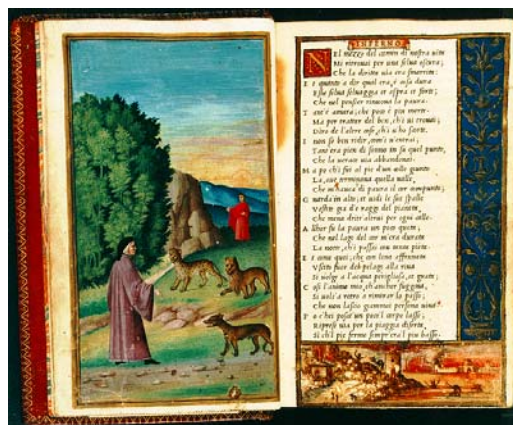 INFERNO
NEl mezzo del camin di nostra vita
Mi ritrovai per una selva oscura;
Che la diritta via era smarrita:
E t quanto a dir qual era, è cosa dura
Esta selva selvaggia et aspra et forte;
Che nel pensier rinuova la paura.
T ant'è amara; che poco è piu morte.
Ma per trattar del ben, ch'i vi trovai;
Diro de l'altre cose, ch'i v'ho scorte.
I non so ben ridir, com'i v'entrai;
Tant'era pien di sonno in su quel punto,
Che la verace via abbandonai.
M a po ch'i fui al pie d'un colle giunto
La, ove terminava quella valle,
Che m'havea di paura il cor compunto;
G uardai in alto; et vidi le sue spalle
Vestite gia de raggi del pianeta,
Che mena dritt'altrui per ogni calle.
A llhor fu la paura un poco queta;
Che nel lago del cor m'era durata
La notte, ch'i passai con tanta pieta.
E t come quei, che con lena affannata
Uscito fuor del pelago alla riva
Si volge a l'acqua perigliosa, et guata;
C osi l'animo mio, ch'anchor fuggiva,
Si volse a retro a rimirar lo passo;
Che non lascio giamai persona viva.
P o ch'ei posat'un poco'l corpo lasso;
Ripresi via per la piaggia diserta,
Si ch'l pie fermo sempr'era'l piu basso.